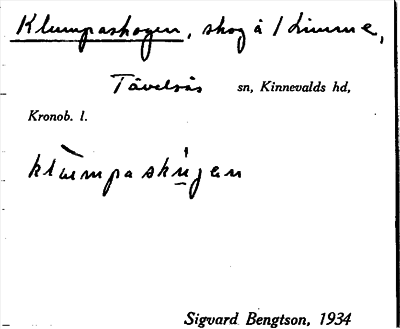 Klumpaskogen, skog å 1 Limme,
Tävelsås sn, Kinnevalds hd,
Kronob. l.
Sigvard Bengtson, 1934